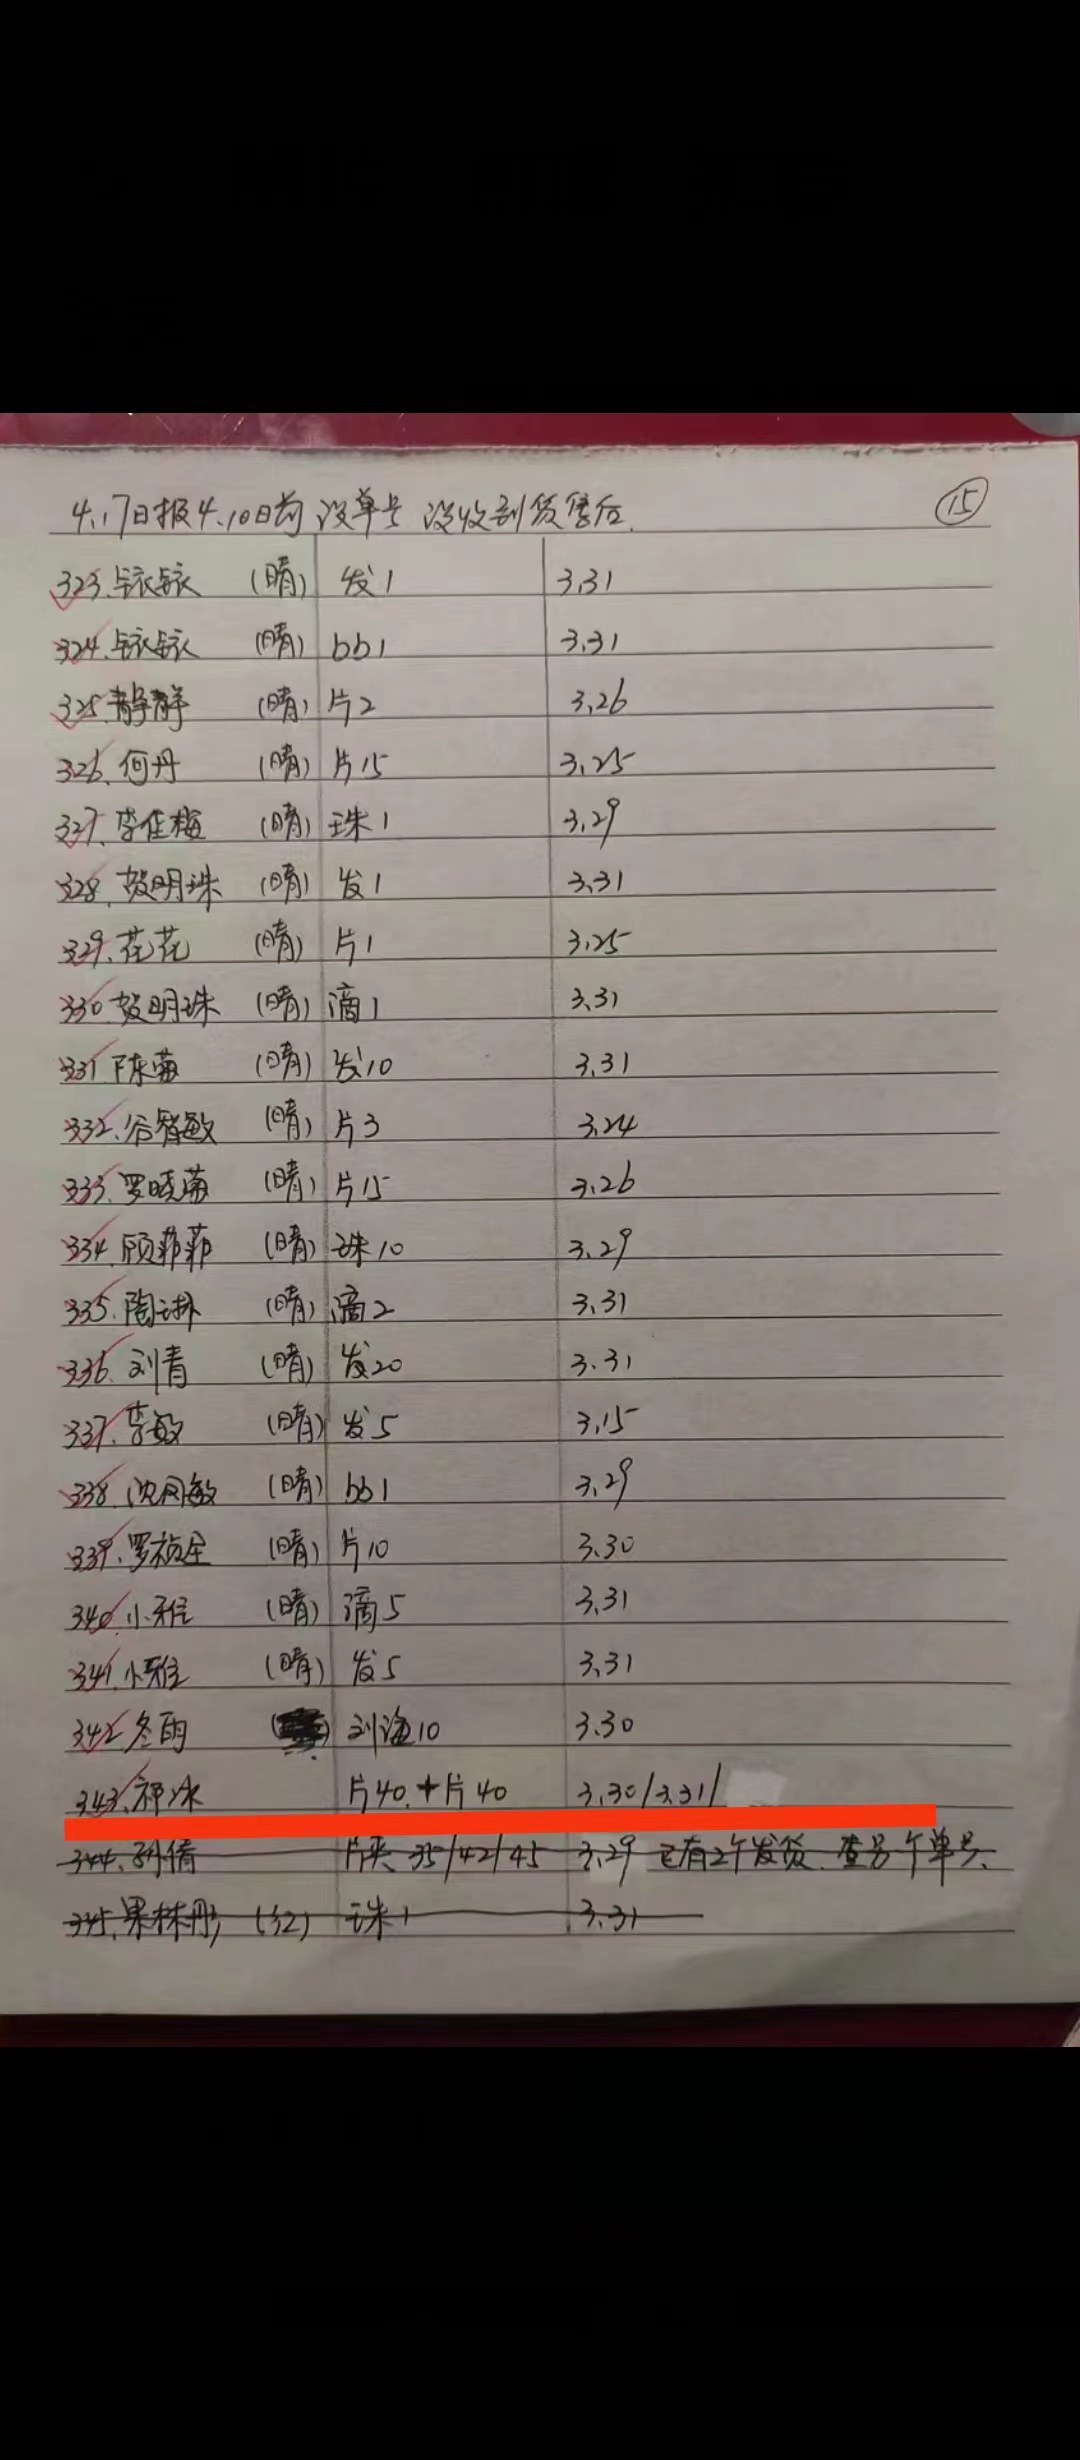 4.17日报4.10日前 没单号 没收到货售后. ⑮
323. 依依 (晴) 发1 3.31
324. 依依 (晴) bb1 3.31
325. 静静 (晴) 片2 3.26
326. 何丹 (晴) 片15 3.25
327. 李佳梅 (晴) 珠1 3.29
328. 贺明珠 (晴) 发1 3.31
329. 花花 (晴) 片1 3.25
330. 贺明珠 (晴) 滴1 3.31
331. 陈菊 (晴) 发10 3.31
332. 谷智敏 (晴) 片3 3.24
333. 罗晓菊 (晴) 片15 3.26
334. 顾菲菲 (晴) 珠10 3.29
335. 陶琳 (晴) 滴2 3.31
336. 刘青 (晴) 发20 3.31
337. 李敏 (晴) 发5 3.15
338. 沈凤敏 (晴) bb1 3.29
339. 罗祯全 (晴) 片10 3.30
340. 小雅 (晴) 滴5 3.31
341. 小雅 (晴) 发5 3.31
342. 冬雨 刘海10 3.30
343. 祁冰 片40.+片40 3.30/3.31/
344. 孙倩 片夹 35/42/45 3.29 已有2个发货. 查另个单号.
345. 果林彤 (红) 珠1 3.31